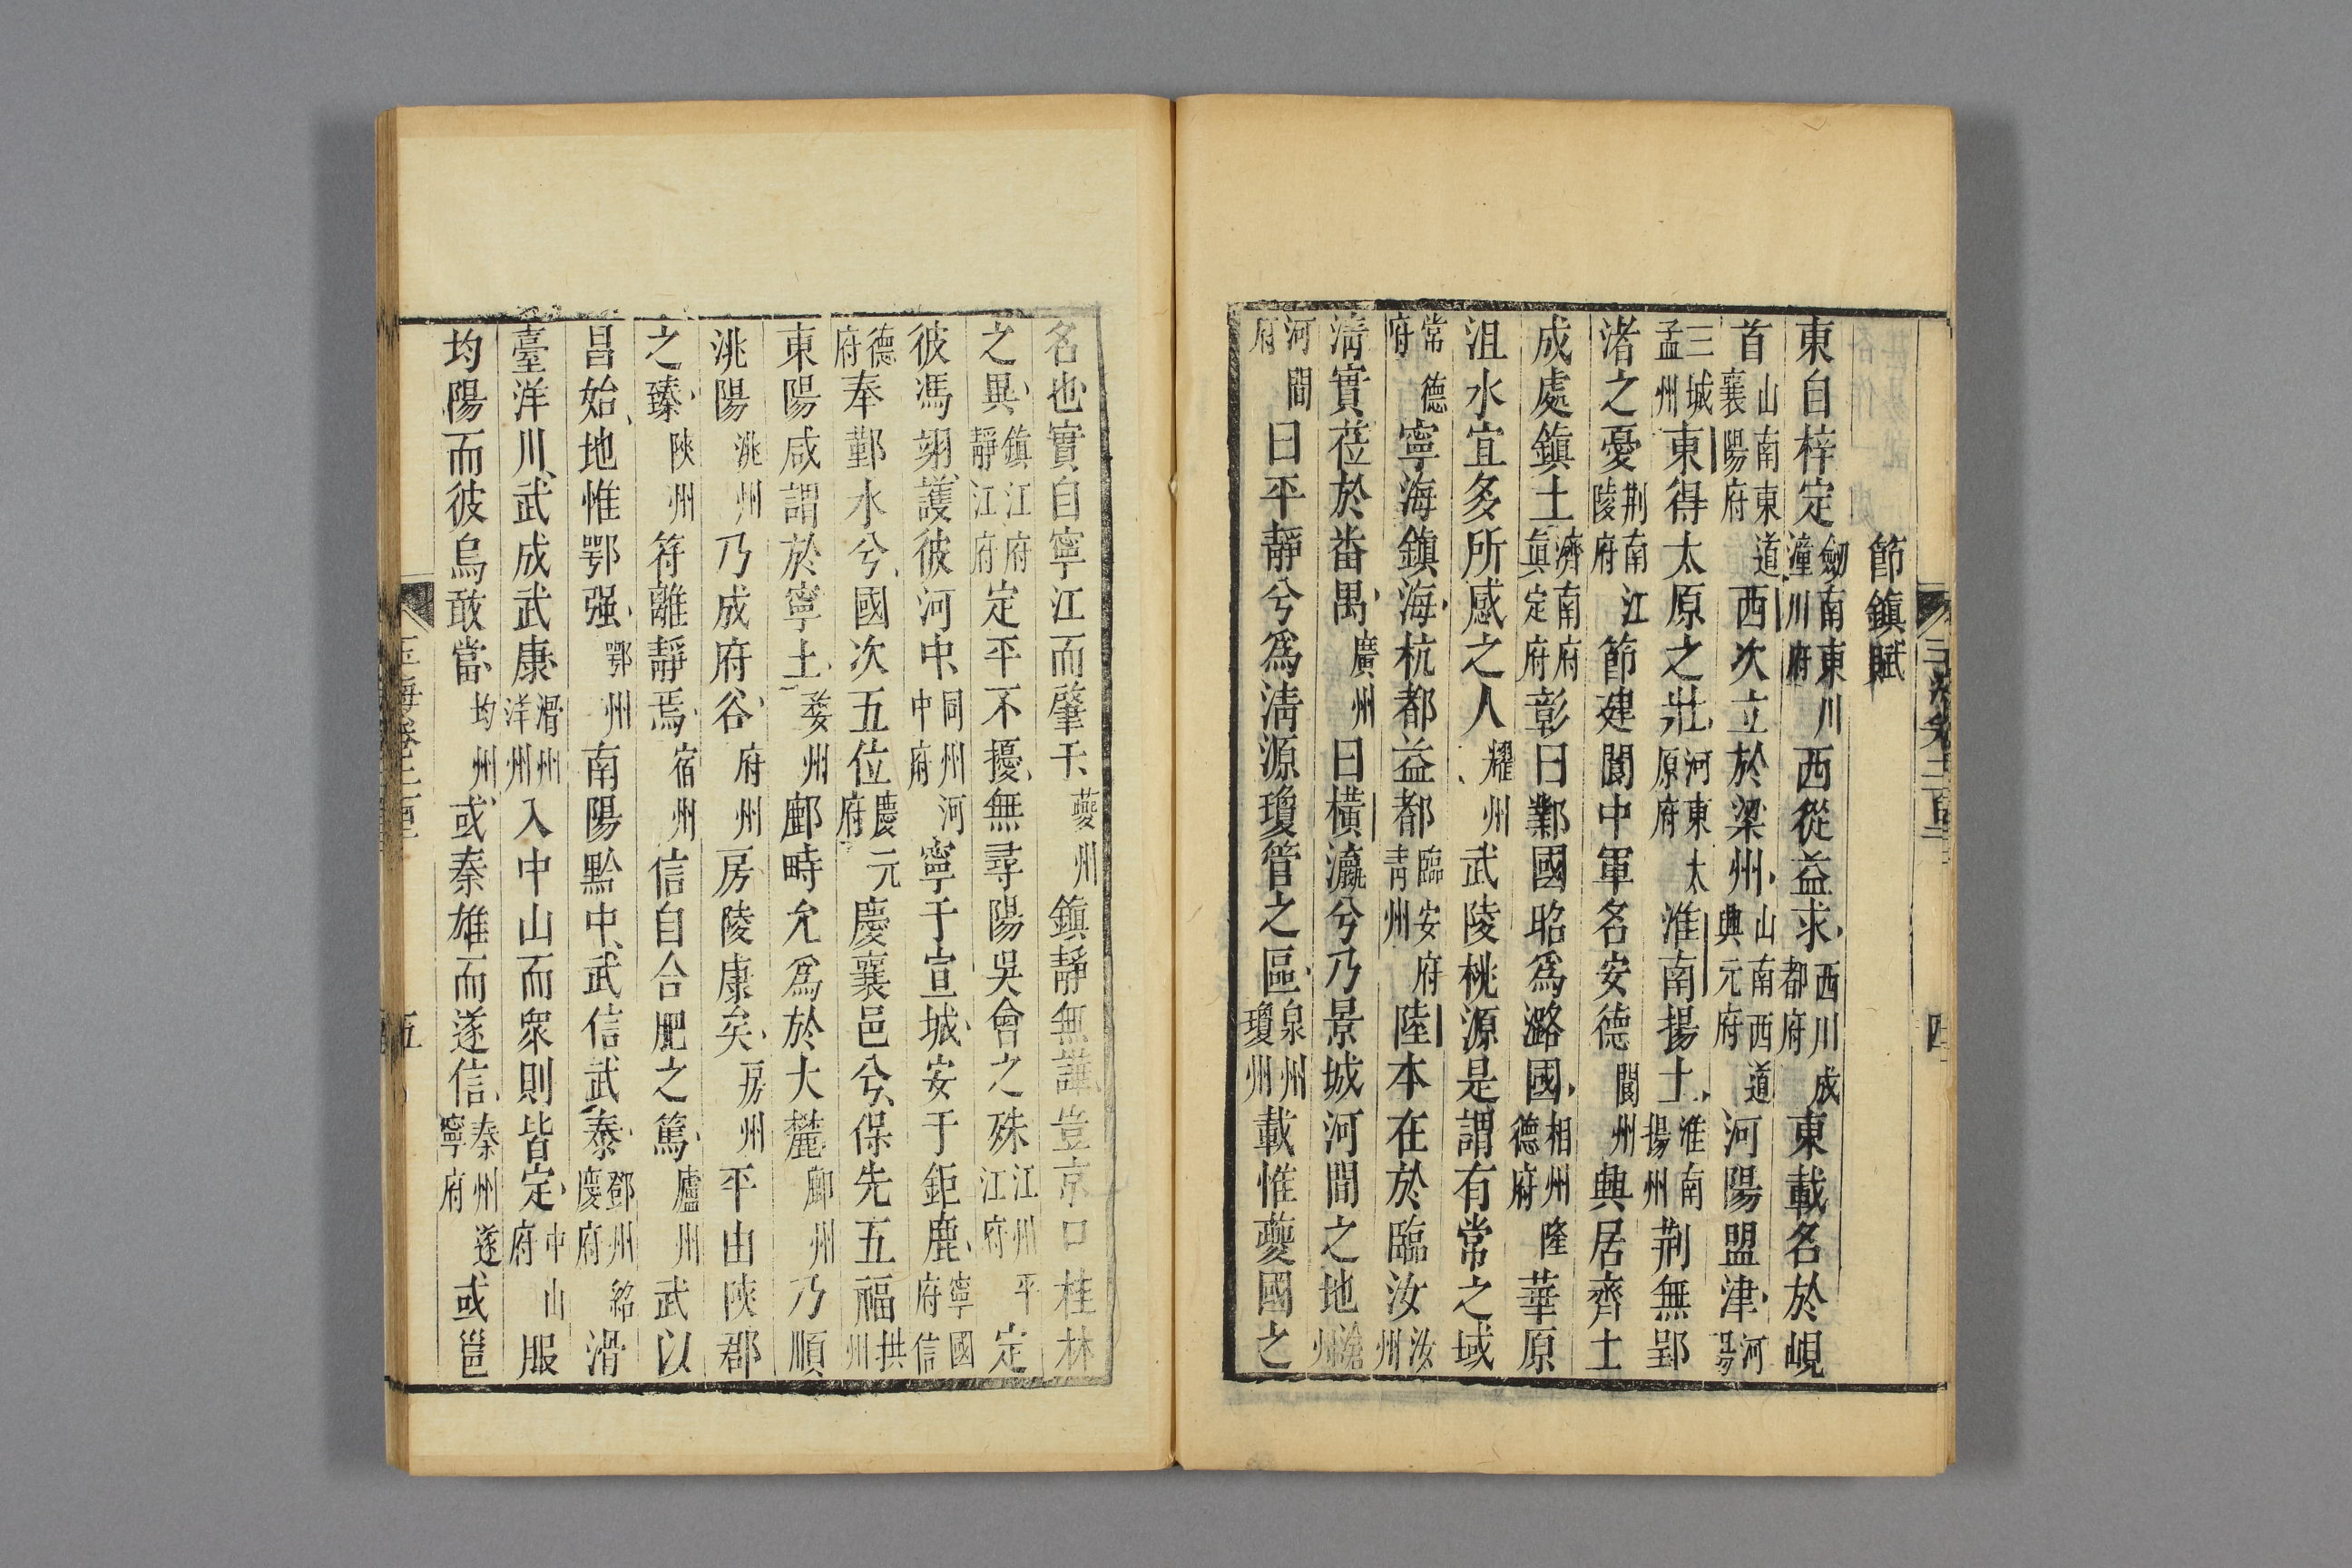 節鎮賦
東自梓定劒南東川潼川府西從益求西川成都府東載名於峴
首山南東道襄陽府西次立於梁州山南西道興元府河陽盟津河陽
三城孟州東得太原之壯河東太原府淮南揚土淮南揚州荆無郢
渚之憂荆南江陵府節建閬中軍名安德閬州興居齊土
成處鎮土濟南府眞定府彰曰鄴國昭爲潞國相州隆德府華原
沮水宜多所感之人耀州武陵桃源是謂有常之域
常德府寧海鎮海杭都益都臨安府青州陸本在於臨汝汝州
清實莅於畨禺廣州曰橫瀛兮乃景城河間之地滄州
河間府曰平靜兮爲清源瓊管之區泉州瓊州載惟夔國之
四
名也實自寧江而肇于夔州鎮靜無譁豈京口桂林
之異鎮江府靜江府定平不擾無尋陽吳會之殊江州平江府定
彼馮翊護彼河中同州河中府寧于宣城安于鉅鹿寧國府信
德府奉鄞水兮國次五位慶元府慶襄邑兮保先五福拱州
東陽咸謂於寧土婺州鄜時允爲於大麓鄜州乃順
洮陽洮州乃成府谷府州房陵康矣房州平由陝郡
之臻陝州符離靜焉宿州信自合肥之篤廬州武以
昌始地惟鄂强鄂州南陽黔中武信武泰鄧州紹慶府滑
臺洋川武成武康滑州洋州入中山而衆則皆定中山府服
均陽而彼烏敢當均州或秦雄而遂信秦州遂寧府或邕
五